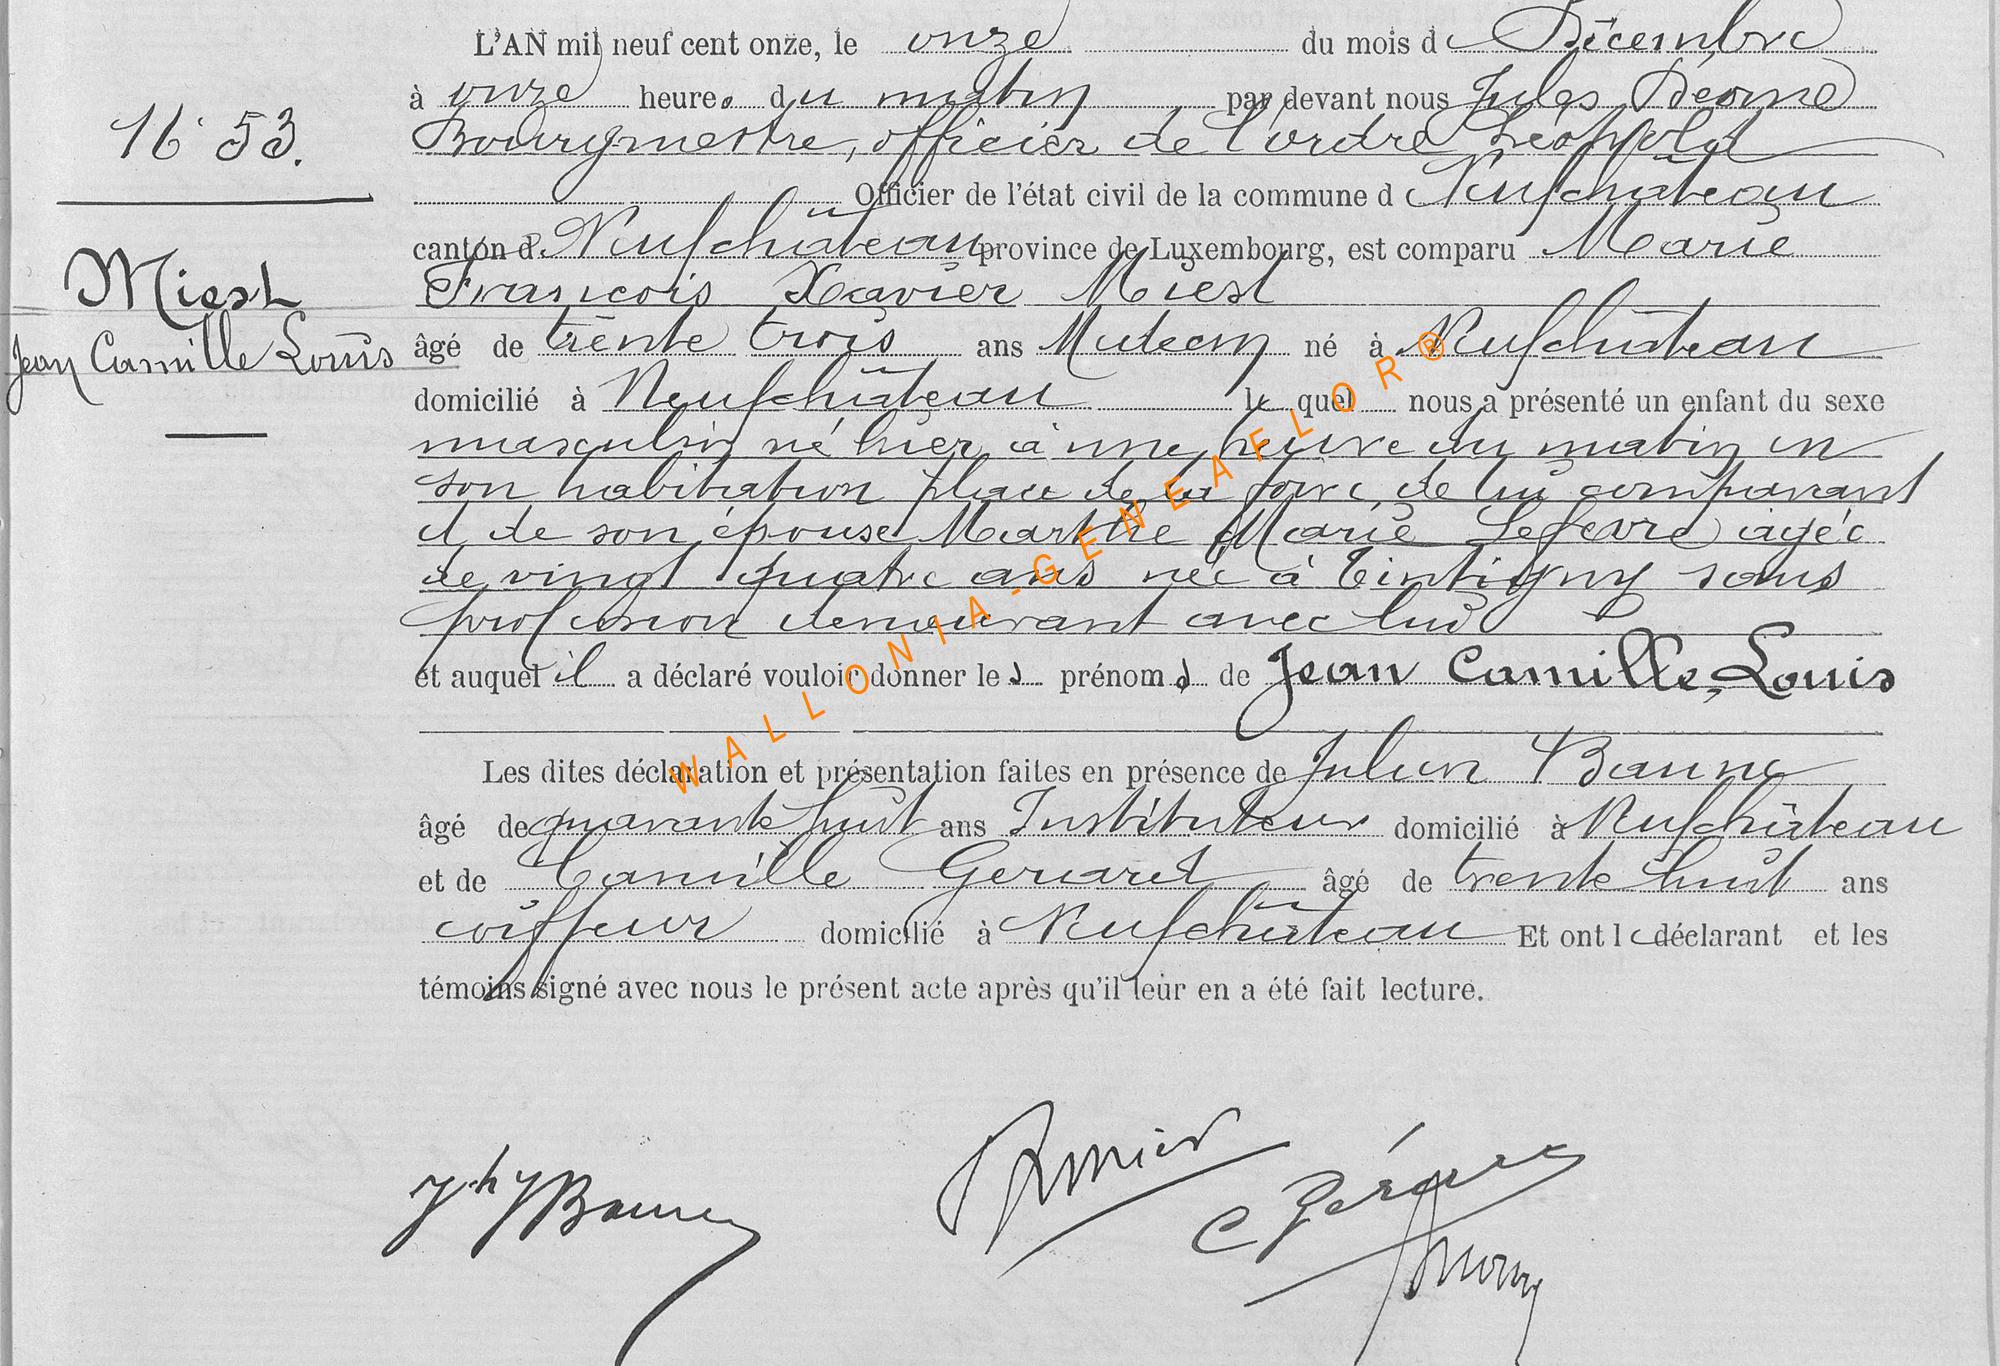 L'AN mil neuf cent onze, le onze du mois de Décembre
à onze heures du matin par devant nous Jules
Bourgmestre, officier de l'ordre Léopold
Officier de l'état civil de la commune de Neufchâteau
canton de Neufchâteau province de Luxembourg, est comparu Marie
François Xavier Miest
âgé de trente trois ans né à Neufchâteau
domicilié à Neufchâteau lequel nous a présenté un enfant du sexe
masculin né hier à une heure du matin en
son habitation place de la foire, de lui comparant
et de son épouse Marthe Marie Lefevre âgée
de vingt quatre ans née à Tintigny sans
profession demeurant avec lui
et auquel il a déclaré vouloir donner les prénoms de Jean Camille, Louis
Les dites déclaration et présentation faites en présence de Julien
âgé de quarante huit ans Instituteur domicilié à Neufchâteau
et de Camille Gerard âgé de trente huit ans
coiffeur domicilié à Neufchâteau Et ont le déclarant et les
témoins signé avec nous le présent acte après qu'il leur en a été fait lecture.
53.
Miest
Jean Camille Louis
C Gérard
WALLONIA-GENEAFLOR®